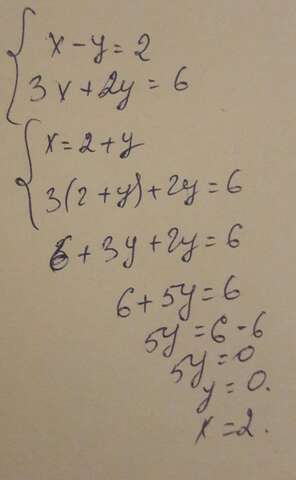 x - y = 2
3x + 2y = 6
x = 2 + y
3(2 + y) + 2y = 6
6 + 3y + 2y = 6
6 + 5y = 6
5y = 6 - 6
5y = 0
y = 0.
x = 2.